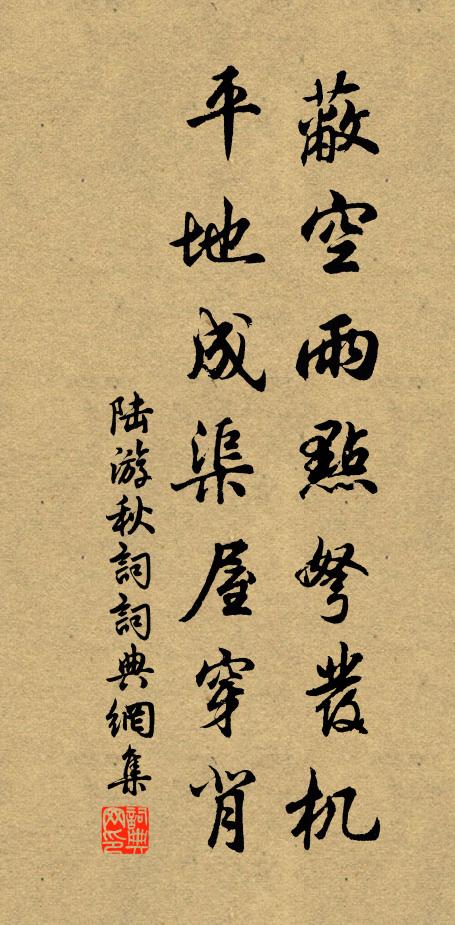 蔽空雨點弩發机
平地成渠屋穿背
陆游秋詞詞典網集
詞典网印